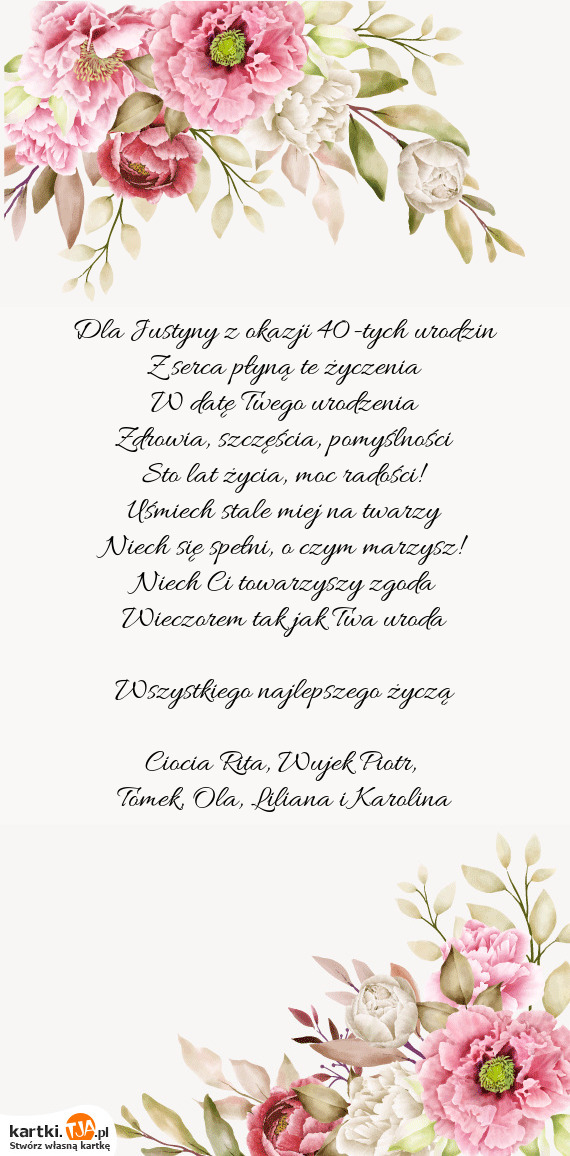 Dla Justyny z okazji 40-tych urodzin
Z serca płyną te życzenia
W datę Twego urodzenia
Zdrowia, szczęścia, pomyślności
Sto lat życia, moc radości!
Uśmiech stale miej na twarzy
Niech się spełni, o czym marzysz!
Niech Ci towarzyszy zgoda
Wieczorem tak jak Twa uroda
Wszystkiego najlepszego życzą
Ciocia Rita, Wujek Piotr,
Tomek, Ola, Liliana i Karolina
kartki.TJA.pl
Stwórz własną kartkę